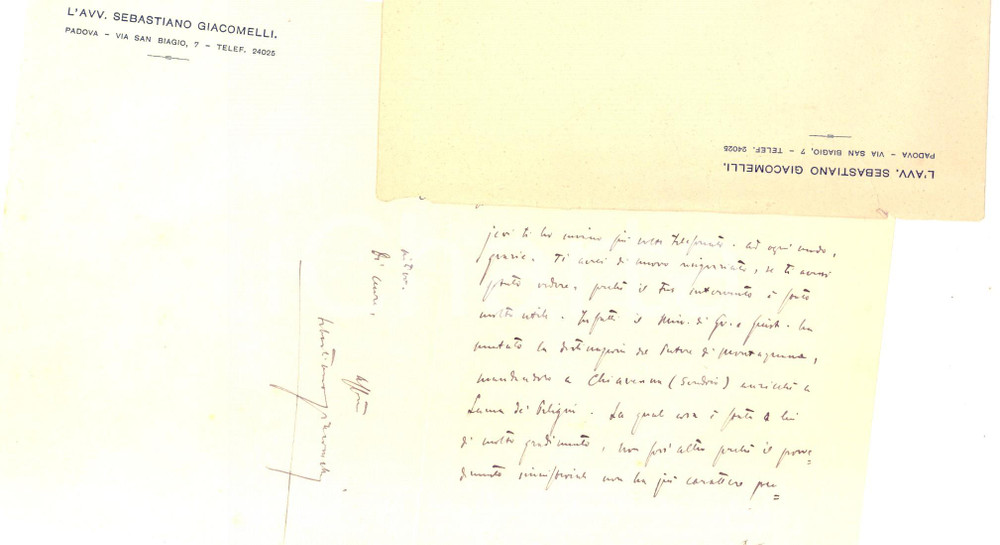 L'AVV. SEBASTIANO GIACOMELLI.
PADOVA - VIA SAN BIAGIO, 7 - TELEF. 24025
L'AVV. SEBASTIANO GIACOMELLI.
PADOVA - VIA SAN BIAGIO, 7 - TELEF. 24025
jeri ti ho più volte telefonato. Ad ogni modo,
grazie. Ti avrei di nuovo ringraziato, se ti avessi
potuto vedere, perché il tuo intervento è stato
molto utile. Infatti il Min. di Gr. e Giust. ha
mutato la destinazione del Pretore di Montagnana,
mandandolo a Chiavenna (Sondrio) anziché a
Lama dei Peligni. La qual cosa è stata a lui
di molto gradimento, non foss'altro perché il prove=
dimento ministeriale non ha più carattere pu=
nitivo.
Di cuore,
aff.mo
Sebastiano Giacomelli